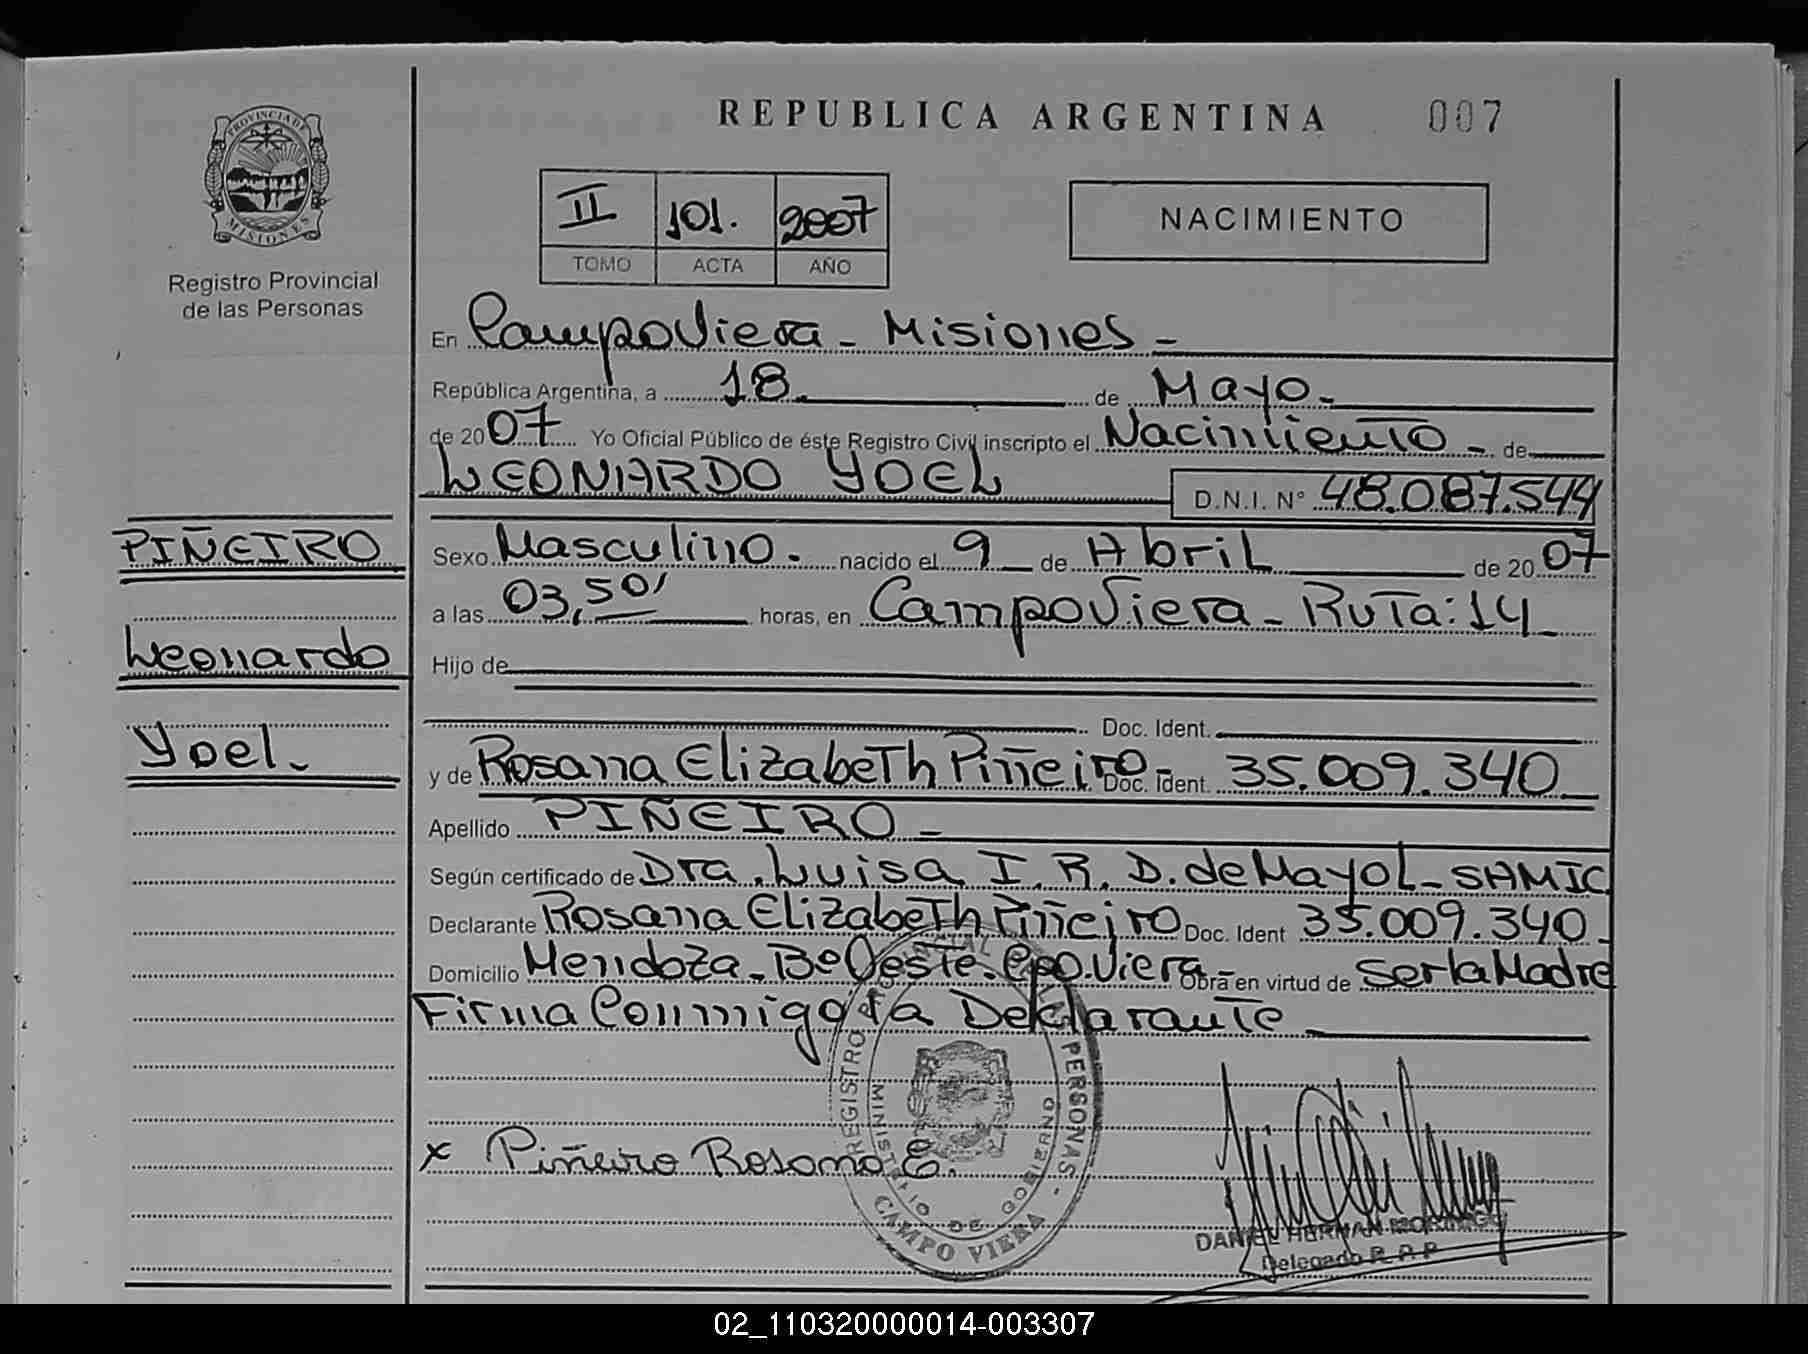 REPUBLICA ARGENTINA 007
PROVINCIA DE
MISIONES
Registro Provincial
de las Personas
II 101. 2007
TOMO ACTA AÑO
NACIMIENTO
En CampoViera - Misiones -
República Argentina, a 18 de Mayo -
de 2007 Yo Oficial Público de éste Registro Civil inscripto el Nacimiento - de
LEONARDO YOEL D.N.I. N° 48.087.544
PIÑEIRO
Leonardo
Yoel.
Sexo Masculino. nacido el 9 de Abril de 2007
a las 03,50' horas, en CampoViera - Ruta: 14
Hijo de
Doc. Ident.
y de Rosana Elizabeth Piñeiro - Doc. Ident. 35.009.340
Apellido PIÑEIRO -
Según certificado de Dra. Luisa I. R. D. de Mayol - SAMIC
Declarante Rosana Elizabeth Piñeiro Doc. Ident 35.009.340
Domicilio Mendoza - Bº Oeste. Cpo. Viera - Obra en virtud de Ser la Madre
Firma Conmigo la Declarante
x Piñeiro Rosana E.
REGISTRO PROVINCIAL DE LAS PERSONAS -
MINISTERIO DE GOBIERNO
CAMPO VIERA
DANIEL HERNAN
Delegado R. P. P.
02_110320000014-003307